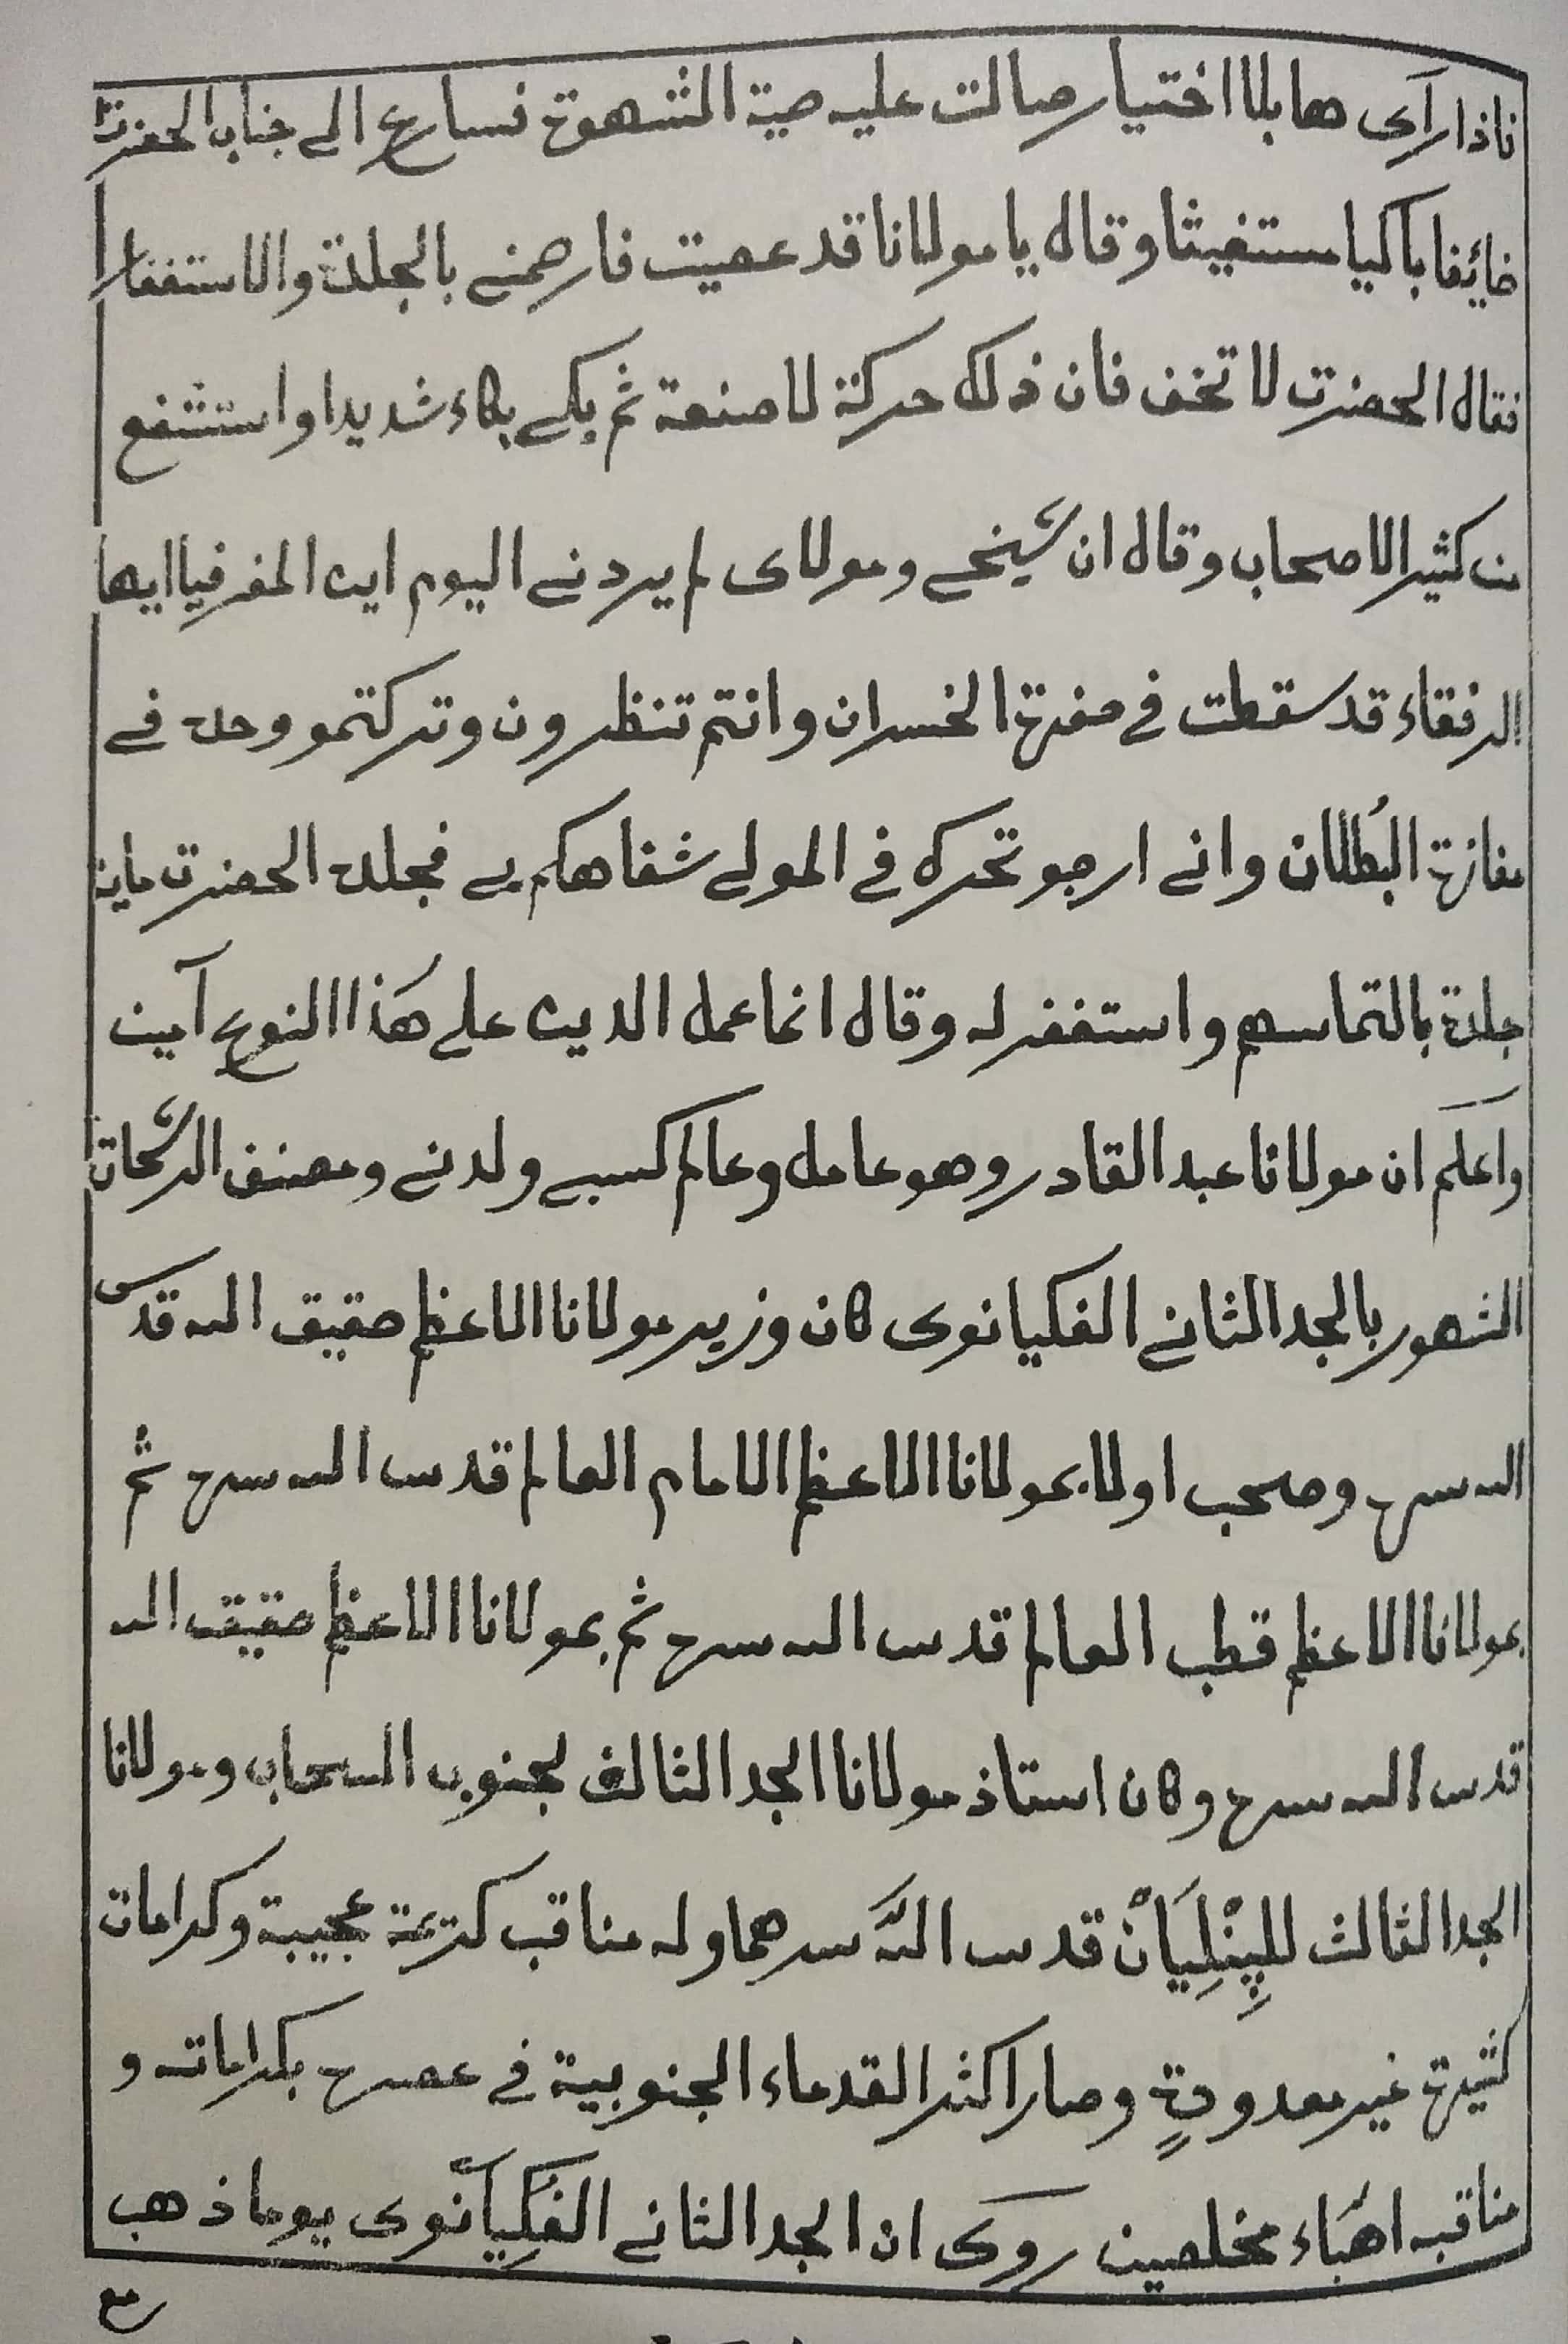 فاذا رآى ها بلا اختيار صالت عليه حية الشهوة فسارع الى جناب الحضرت
خائفا باكيا مستغيثا وقال يا مولانا قد عصيت فارحمني بالجلدة والاستغفار
فقال الحضرت لا تخف فان ذلك حركة لا صنعة ثم بكى بكاء شديدا واستشفع
من كثير الاصحاب وقال ان شيخي ومولاى لم يردني اليوم اين المفر فيا ايها
الرفقاء قد سقطت في حفرة الخسران وانتم تنظرون وتركتمو وحده في
مفازة البُطلان واني ارجو تحرك في المولى شفاهكم بي فجلده الحضرت مائة
جلدة بالتماسهم واستغفر له وقال انما عمل الدين على هَذا النوع آمين
واعلم ان مولانا عبد القادر وهو عامل وعالم كسبي ولدني ومصنف الرشحات
الشهور بالجد الثاني الفكيانوى كان وزير مولانا الاعظم حقيق الله قدس
الله سره وصحب اولا بمولانا الاعظم الامام العالم قدس الله سره ثم
بمولانا الاعظم قطب العالم قدس الله سره ثم بمولانا الاعظم حقيق الله
قدس الله سره وكان استاذ مولانا الجد الثالث لجنوب السحاب ومولانا
الجد الثالث للپِنْلِيَانْ قدس اللّه سرهما وله مناقب كريمة عجيبة وكرامات
كثيرة غير معدودةٍ وصار اكثر القدماء الجنوبية في عصره بكراماته و
مناقبه احبّاء مخلصين روى ان الجد الثاني الفُكِيانوى يوما ذهب